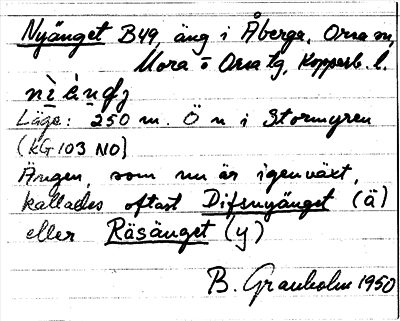 Nyänget B49, äng i Åberga, Orsa sn,
Mora o Orsa tg, Kopparb. l.
Läge: 250 m. Ö n i Stormyren
(KG 103 NO)
Ängen, som nu är igenväxt,
kallades oftast Difsnyänget (ä)
eller Räsänget (y)
B. Granholm 1950